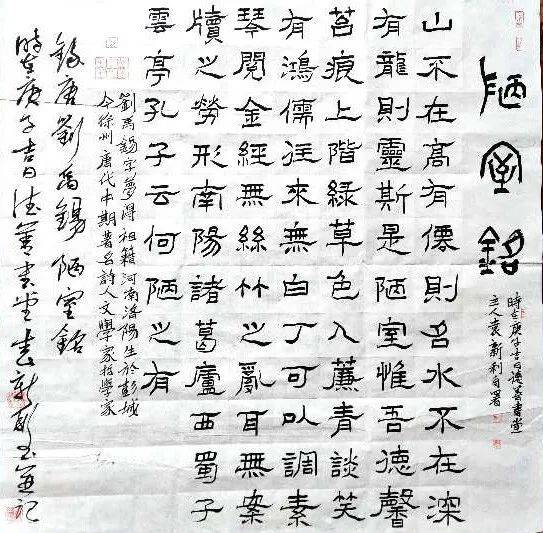 陋室銘
時在庚子吉日德善書堂
主人袁新利自署
山不在高有僊則名水不在深
有龍則靈斯是陋室惟吾德馨
苔痕上階綠草色入簾青談笑
有鴻儒往來無白丁可以調素
琴閱金經無絲竹之亂耳無案
牘之勞形南陽諸葛廬西蜀子
雲亭孔子云何陋之有
劉禹錫字夢得祖籍河南洛陽生於彭城
今徐州唐代中期著名詩人文學家哲學家
錄唐劉禹錫陋室銘
時在庚子吉日德善書堂袁新利書並記